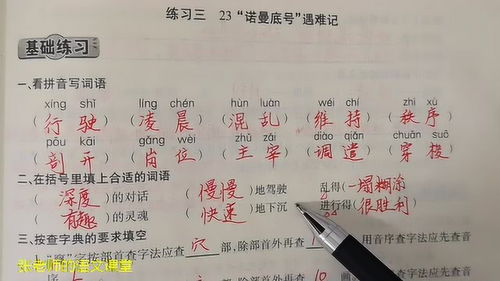 练习三 23 “诺曼底号”遇难记
基础练习
一、看拼音写词语
xíng shǐ líng chén hùn luàn wéi chí zhì xù
（行驶）（凌晨）（混乱）（维持）（秩序）
pōu kāi gǎng wèi zhǔ zǎi diào qiǎn chuān suō
（剖开）（岗位）（主宰）（调遣）（穿梭）
二、在括号里填上合适的词语
（深度）的对话 （慢慢）地驾驶 乱得（一塌糊涂）
（有趣）的灵魂 （快速）地下沉 进行得（很胜利）
三、按查字典的要求填空
1.“窜”字按部首查字法应查 穴 部，除部首外再查 用音序查字法应先查音
张老师的语文课堂
部，除部首外再查 10